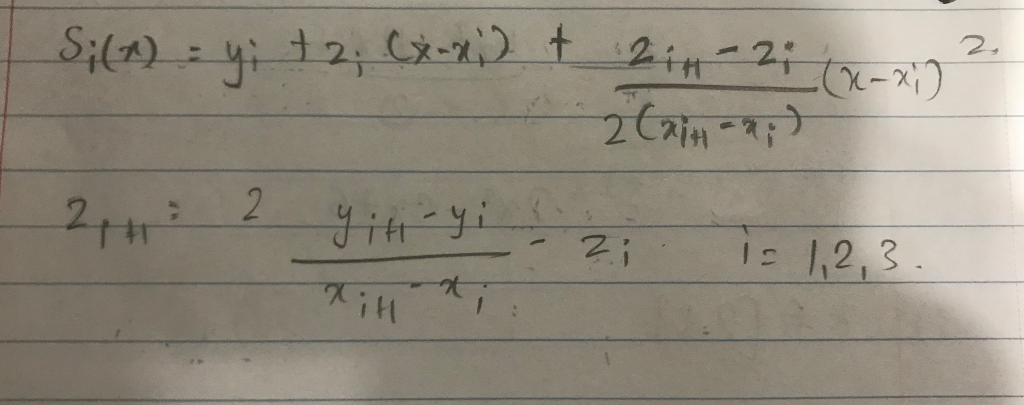 Sᵢ(x) = yᵢ + zᵢ (x-xᵢ) + \frac{zᵢ₊₁ - zᵢ}{2(xᵢ₊₁ - xᵢ)} (x-xᵢ)².
zᵢ₊₁ = 2 \frac{yᵢ₊₁ - yᵢ}{xᵢ₊₁ - xᵢ} - zᵢ i = 1,2,3.